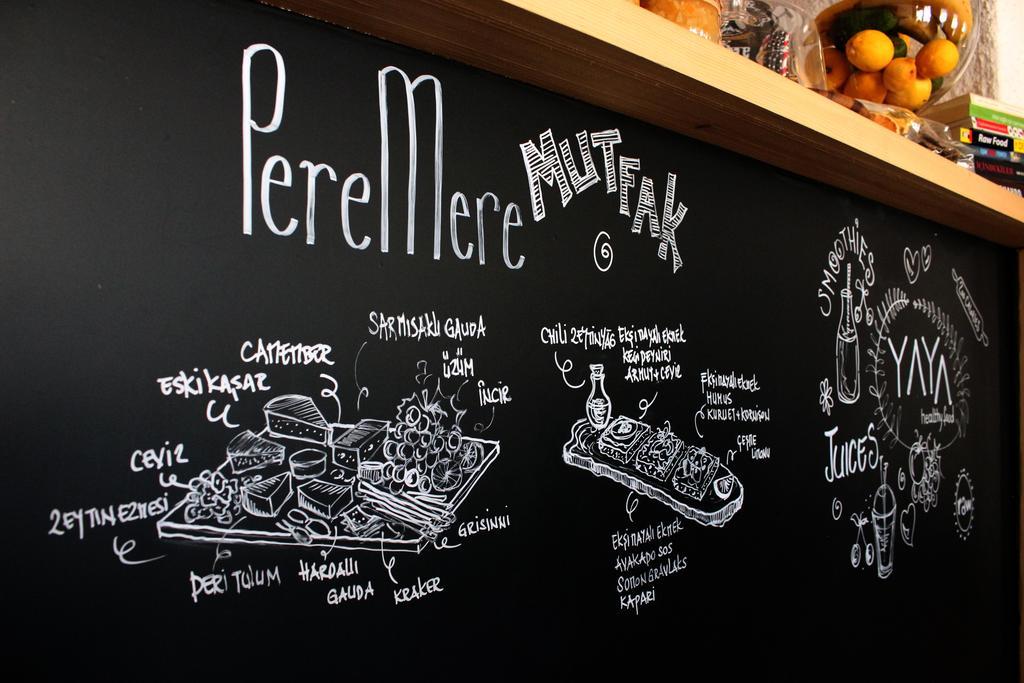 PereMere
MUTFAK
SARMISAKLI GAUDA
CAMEMBER
ÜZÜM
ESKI KAŞAR
İNCİR
CEVİZ
ZEYTIN EZMESİ
GRISINNI
DERİ TULUM
HARDALLI
GAUDA
KRAKER
CHILI ZEYTİNYAĞ
EKŞİ MAYALI EKMEK
KEÇİ PEYNİRİ
ARMUT+CEVİZ
EKŞİ MAYALI EKMEK
HUMUS
EKŞİ MAYALI EKMEK
AVAKADO SOS
SOMON GRAVLAKS
KAPARİ
SMOOTHIES
YAYA
healthy food
JUICES
raw
Raw Food